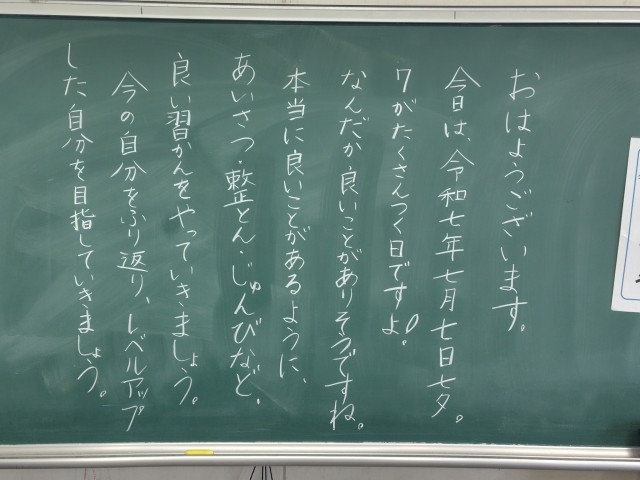 おはようございます。
今日は、令和七年七月七日七夕。
7がたくさんつく日ですよ!
なんだか良いことがありそうですね。
本当に良いことがあるように、
あいさつ・整とん・じゅんびなど、
良い習かんをやっていきましょう。
今の自分をふり返り、レベルアップ
した自分を目指していきましょう。